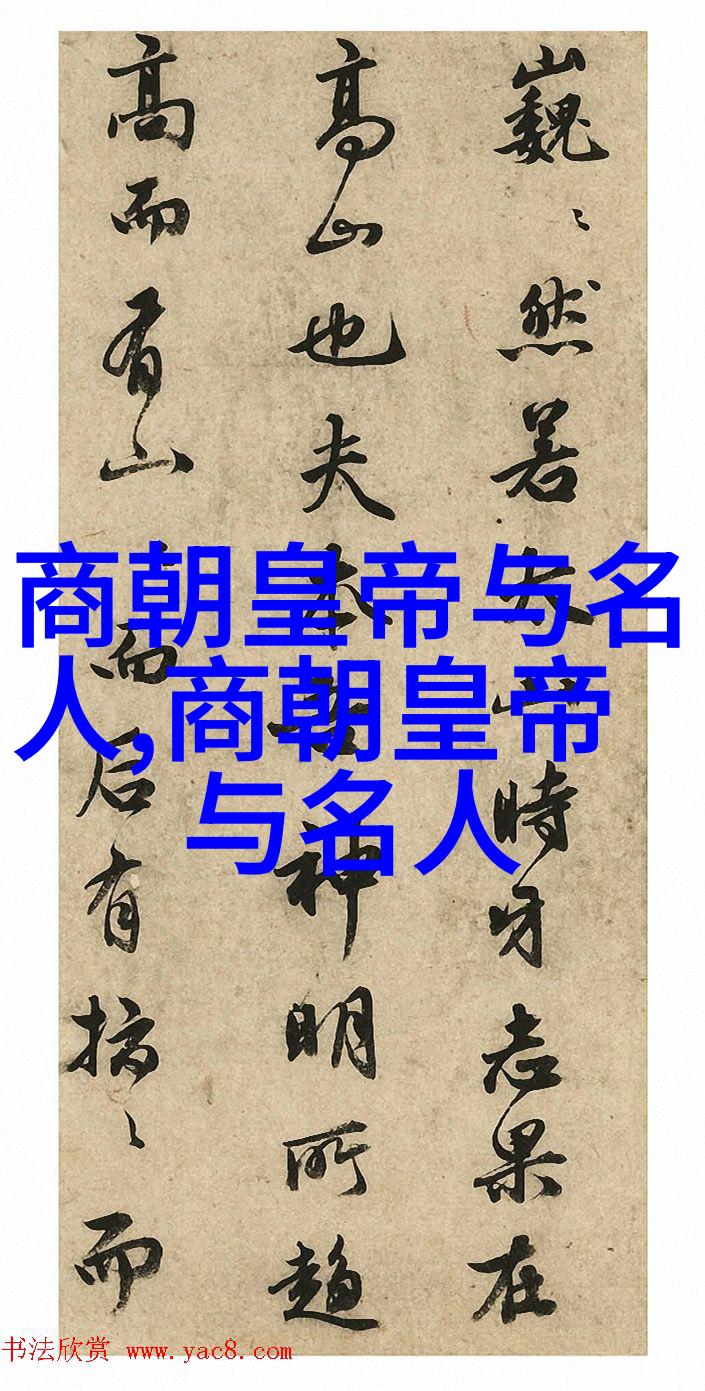 巍〻然若太山時牙志果在
高山也夫本神明所趨
高而有山而后有〻而
商朝皇帝与名
人,商朝皇帝
与名人
书法欣赏 www.yac8.com